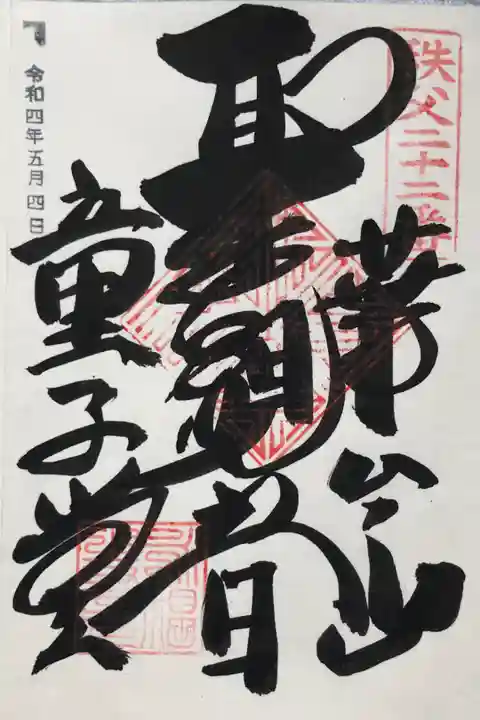 秩父二十二番
華台山
聖観音
童子堂
令和四年五月四日